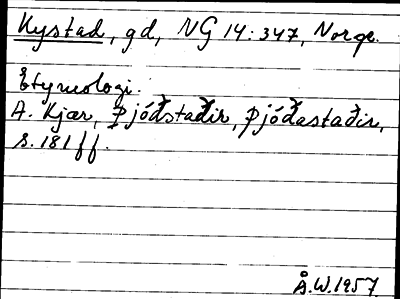 Kystad, gd, NG 14:347, Norge.
Etymologi.
A. Kjær, Þjóðstaðir, Þjóðastaðir,
s. 181 ff.
Å.W. 1957